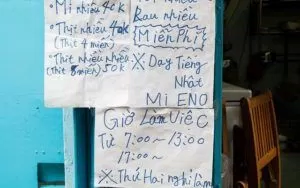 • Mì nhiều 40k
• Thịt nhiều 40k
(Thịt 4 miến)
• Thịt nhiều nhiều
(Thịt 8 miến) 50k
Rau nhiều
(Miễn Phí)
※ Dạy Tiếng
Nhật
Mì ENO
Giờ Làm Việc
Từ 7:00~13:00
17:00~
※ Thứ Hai nghỉ làm